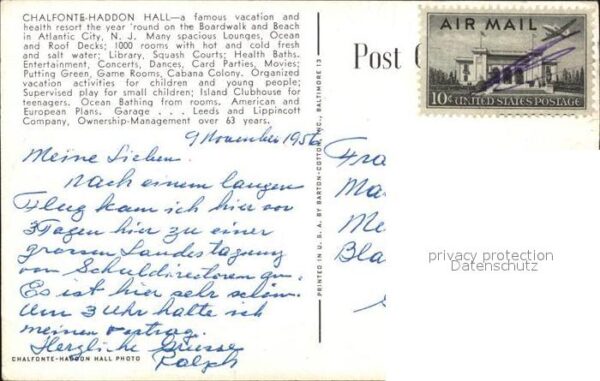 CHALFONTE-HADDON HALL—a famous vacation and
health resort the year 'round on the Boardwalk and Beach
in Atlantic City, N. J. Many spacious Lounges, Ocean
and Roof Decks; 1000 rooms with hot and cold fresh
and salt water; Library, Squash Courts; Health Baths.
Entertainment, Concerts, Dances, Card Parties, Movies;
Putting Green, Game Rooms, Cabana Colony. Organized
vacation activities for children and young people;
Supervised play for small children; Island Clubhouse for
teenagers. Ocean Bathing from rooms. American and
European Plans. Garage . . . Leeds and Lippincott
Company, Ownership-Management over 63 years.
9 November 1956
Meine Lieben.
Nach einem langen
Flug kam ich hier vor
3 Tagen hier zu einer
grossen Landestagung
von Schuldirectoren an.
Es ist hier sehr schön.
Um 3 Uhr halte ich
meinen Vortrag.
Herzliche Grüsse
Ralph
CHALFONTE-HADDON HALL PHOTO
PRINTED IN U. S. A. BY BARTON-COTTON, INC., BALTIMORE 13
Post
AIR MAIL
10¢ UNITED STATES POSTAGE
Fra
Ma
Me
Bla
privacy protection
Datenschutz